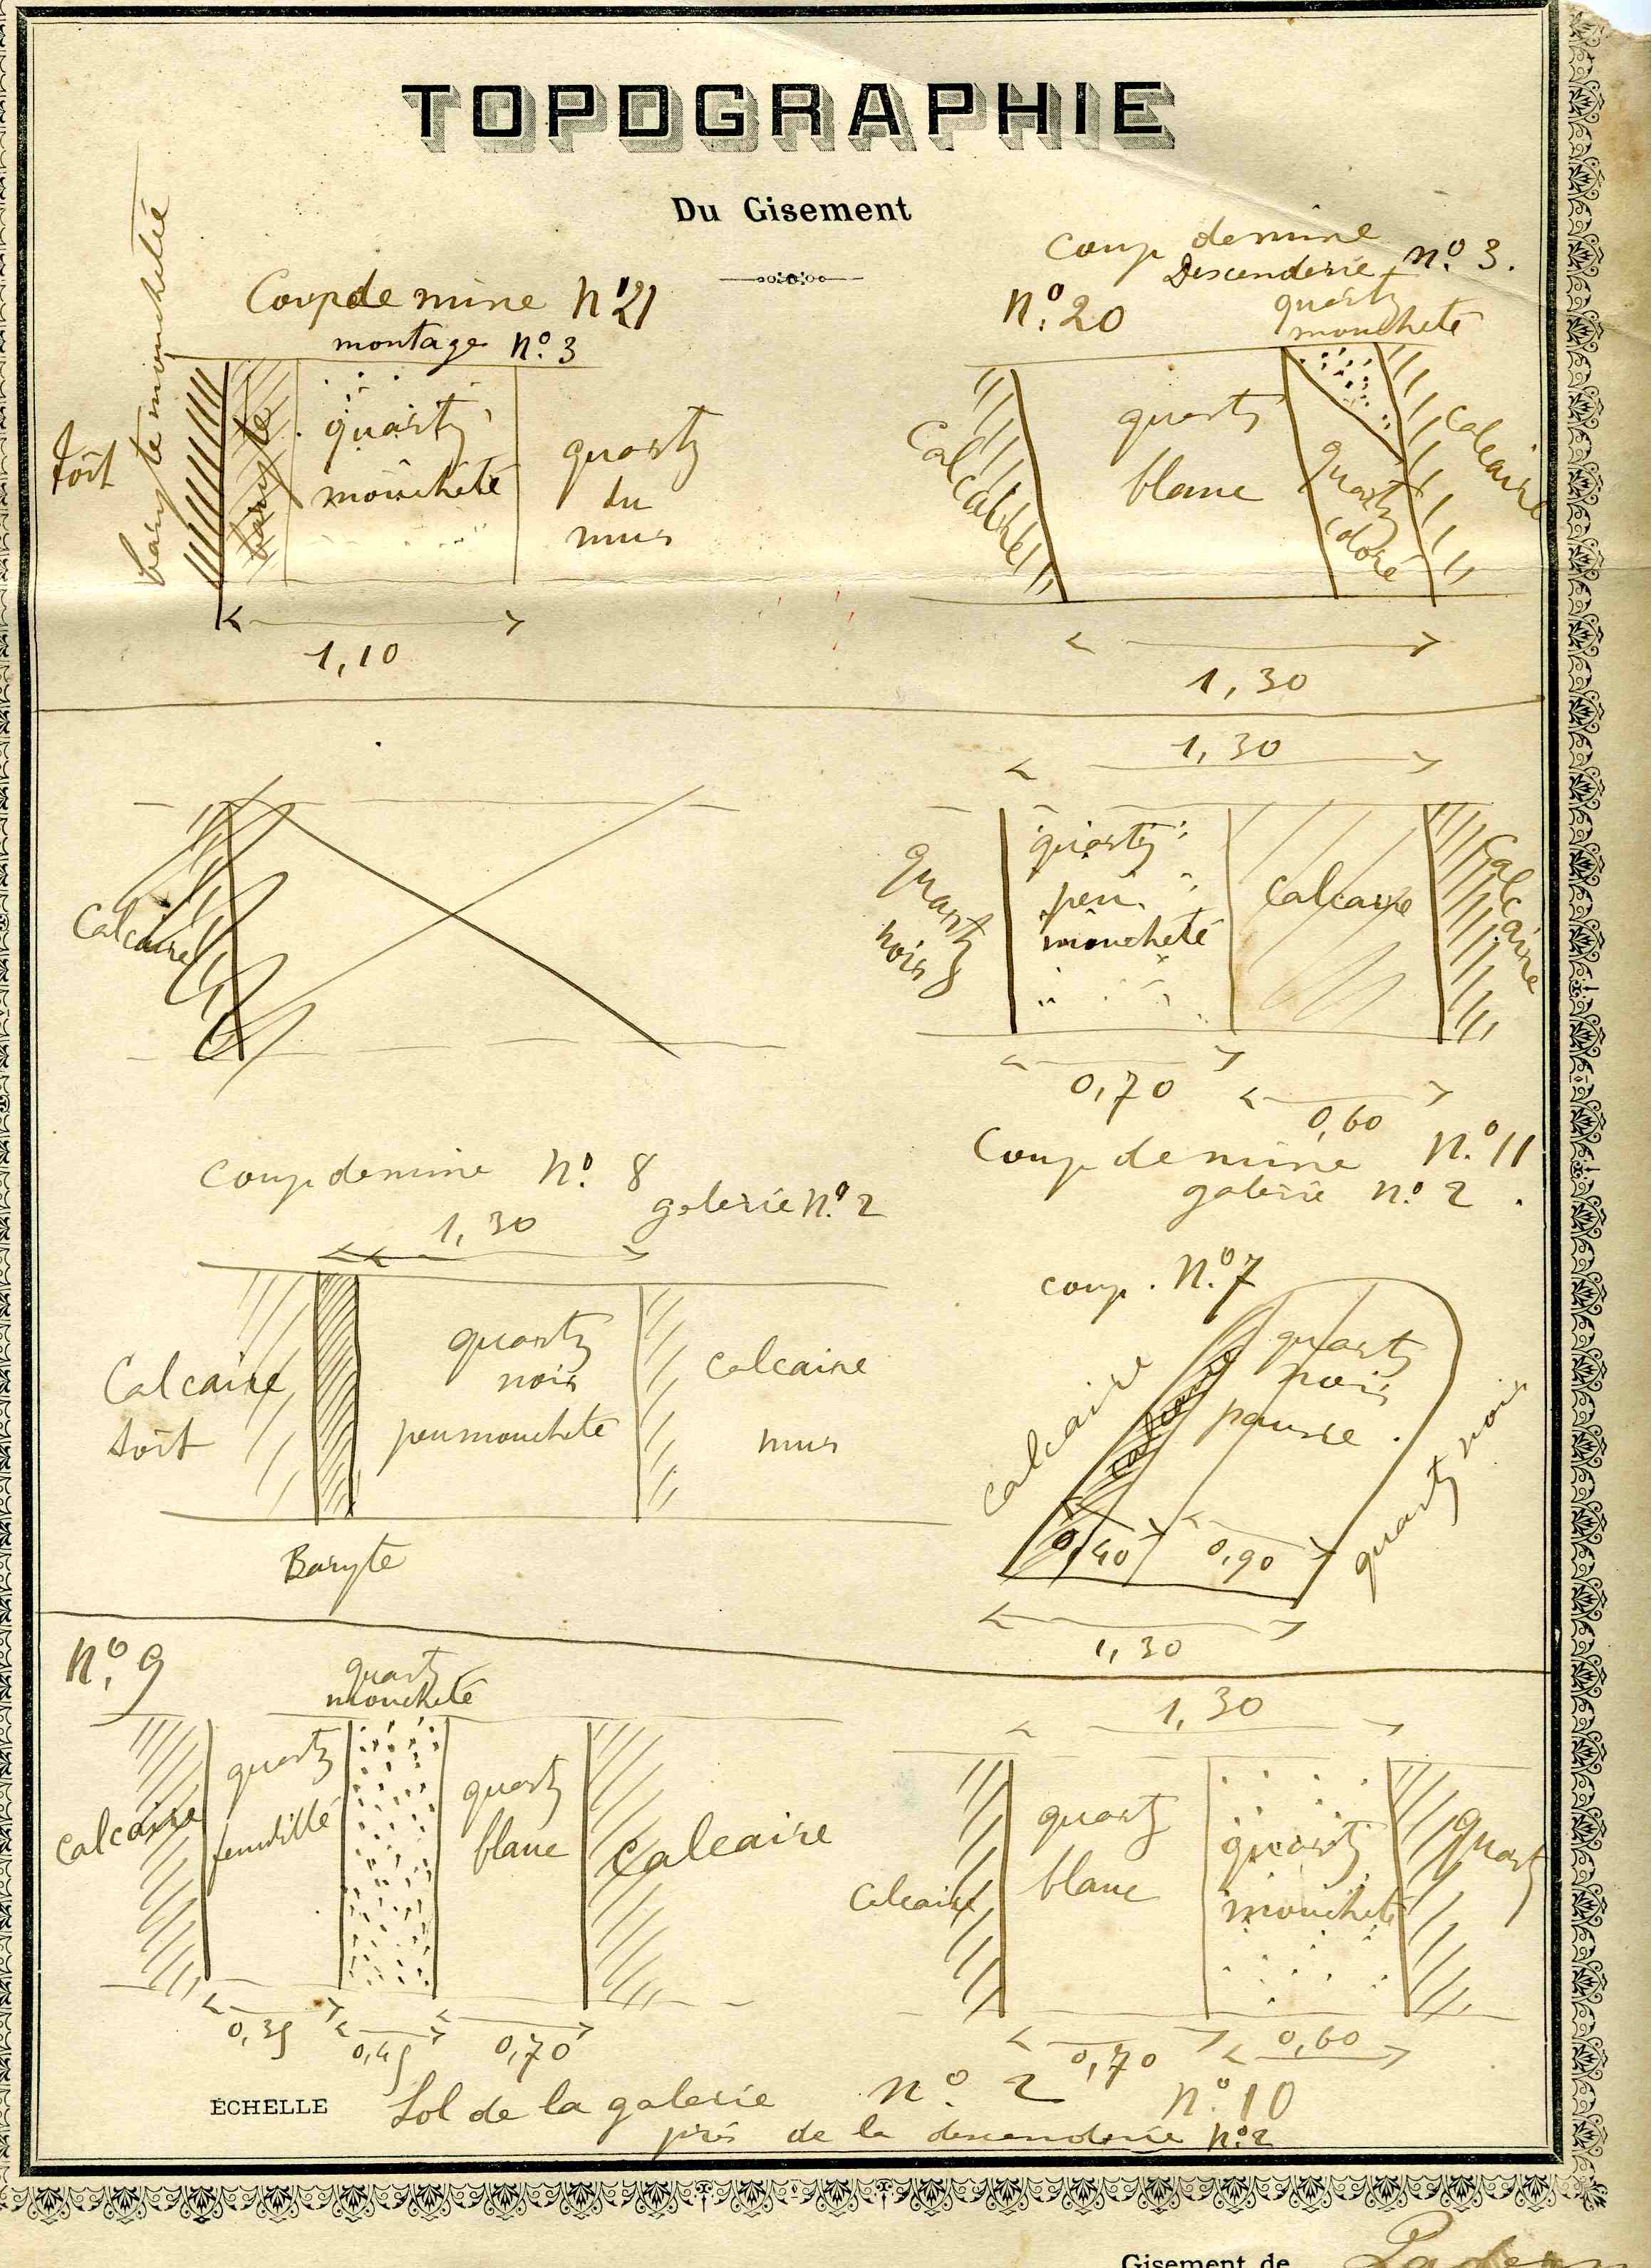 TOPOGRAPHIE
Du Gisement
Coup de mine n° 21
montage n° 3
toit
baryte mouchetée
baryte
quartz
moucheté
quartz
du
mur
1,10
Coup de mine
Descenderie n° 3.
n° 20
quartz
moucheté
Calcaire
quartz
blanc
quartz
coloré
Calcaire
1,30
Calcaire
1,30
quartz
noir
quartz
peu
moucheté
Calcaire
Calcaire
0,70
0,60
Coup de mine n° 11
galerie n° 2.
Coup de mine n° 8
galerie n° 2
1,30
Calcaire
toit
quartz
noir
peu moucheté
Calcaire
mur
Baryte
coup. n° 7
calcaire
quartz
noir
pauvre.
quartz noir
0,40
0,90
1,30
n° 9
quartz
moucheté
Calcaire
quartz
fendillé
quartz
blanc
Calcaire
0,35
0,45
0,70
1,30
Calcaire
quartz
blanc
quartz
moucheté
quartz
0,70
0,60
n° 10
ÉCHELLE
Sol de la galerie n° 2
près de la descenderie n° 2
Gisement de